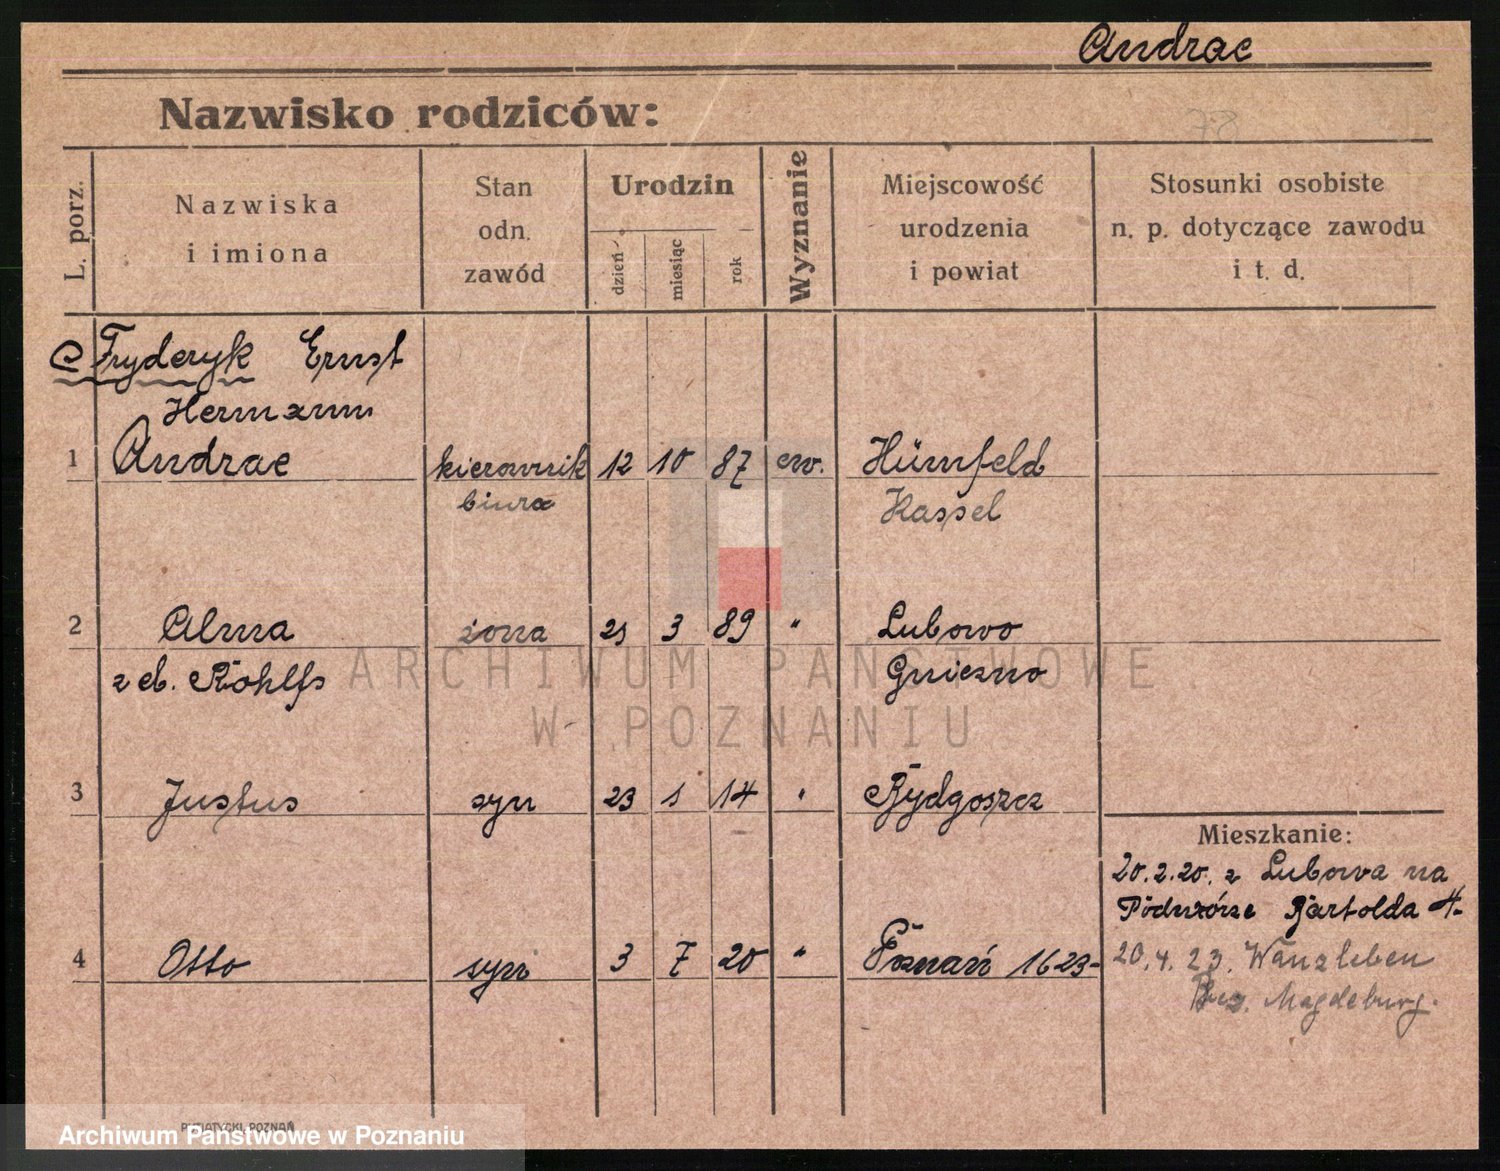 Andrae
Nazwisko rodziców:
L. porz.
Nazwiska
i imiona
Stan
odn.
zawód
Urodzin
dzień
miesiąc
rok
Wyznanie
Miejscowość
urodzenia
i powiat
Stosunki osobiste
n. p. dotyczące zawodu
i t. d.
Fryderyk Ernst
Hermann
1 Andrae kierownik 12 10 87 ew. Hünfeld
biura Kassel
2 Alma żona 21 3 89 " Lubowo
z eb. Röhlfs Gniezno
3 Justus syn 23 1 14 " Bydgoszcz
Mieszkanie:
20.2.20. z Lubowa na
Podwórze Bartolda 4.
4 Otto syn 3 7 20 " Poznań 1623-
20.4.23. Wanzleben
Bez. Magdeburg.
ARCHIWUM PAŃSTWOWE
W POZNANIU
PUZIATYCKI, POZNAŃ
Archiwum Państwowe w Poznaniu